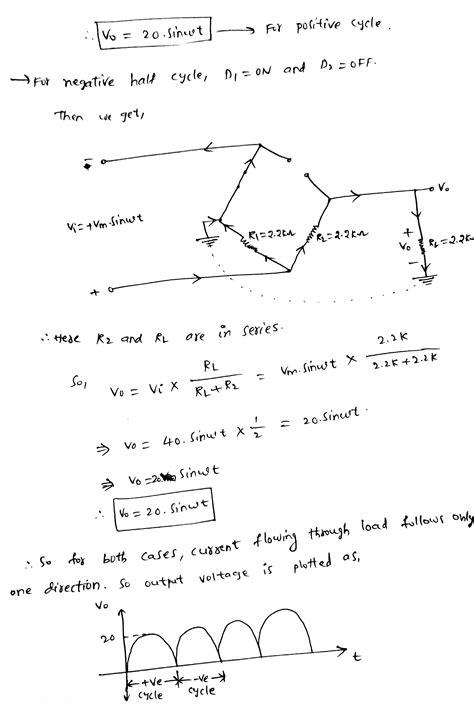 ∴ Vo = 20.sinωt → For positive cycle.
→ For negative half cycle, D1 = ON and D2 = OFF.
Then we get,
−
Vo
Vi = +Vm.sinωt
R1 = 2.2kΩ
R2 = 2.2kΩ
+
Vo
−
RL = 2.2k
+
∴ Here R2 and RL are in series.
So, Vo = Vi × RL / (RL + R2) = Vm.sinωt × 2.2K / (2.2K + 2.2K)
⇒ Vo = 40.sinωt × 1/2 = 20.sinωt.
⇒ Vo = 20 sinωt
∴ Vo = 20.sinωt
∴ So for both cases, current flowing through load follows only
one direction. So output voltage is plotted as,
Vo
20
t
+ve cycle
-ve cycle